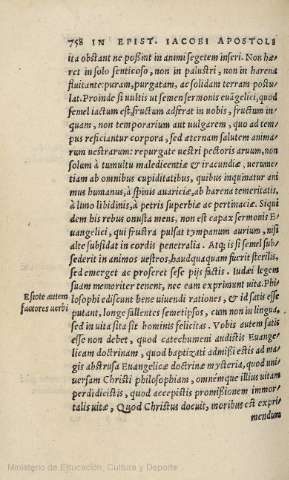 758 IN EPIST. IACOBI APOSTOLI
ita obstant ne possint in animi segetem inseri. Non hæ-
ret in solo senticoso, non in palustri, non in harena
fluitante: puram, purgatam, ac solidam terram postu-
lat. Proinde si uultis ut semen sermonis euãgelici, quod
semel iactum est, fructum adferat in uobis, fructum in-
quam, non temporarium aut uulgarem, quo ad tem-
pus reficiantur corpora, sed æternam salutem anima-
rum uestrarum: repurgate uestri pectoris aruum, non
solum à tumultu maledicentiæ & iracundiæ, uerume-
tiam ab omnibus cupiditatibus, quibus inquinatur ani
mus humanus, à spinis auariciæ, ab harena temeritatis,
à limo libidinis, à petris superbiæ ac pertinaciæ. Siqui
dem his rebus onusta mens, non est capax sermonis E-
uangelici, qui frustra pulsat tympanum aurium, nisi
alte subsidat in cordis penetralia. Atq; is si semel sub-
sederit in animos uestros, haudquaquam fuerit sterilis,
sed emerget ac proseret sese pijs factis. Iudæi legem
suam memoriter tenent, nec eam exprimunt uita. Phi-
Estote autem
factores uerbi
losophi ediscunt bene uiuendi rationes, & id satis esse
putant, longe fallentes semetipsos, cum non in lingua,
sed in uita sita sit hominis felicitas. Vobis autem satis
esse non debet, quod catechumeni audistis Euange-
licam doctrinam, quod baptizati admissi estis ad ma-
gis abstrusa Euangelicæ doctrinæ mysteria, quod uni-
uersam Christi philosophiam, omnémque illius uitam
perdidicistis, quod accepistis promissionem immor-
talis uitæ, Quod Christus docuit, moribus est expri
mendum
Ministerio de Educación, Cultura y Deporte